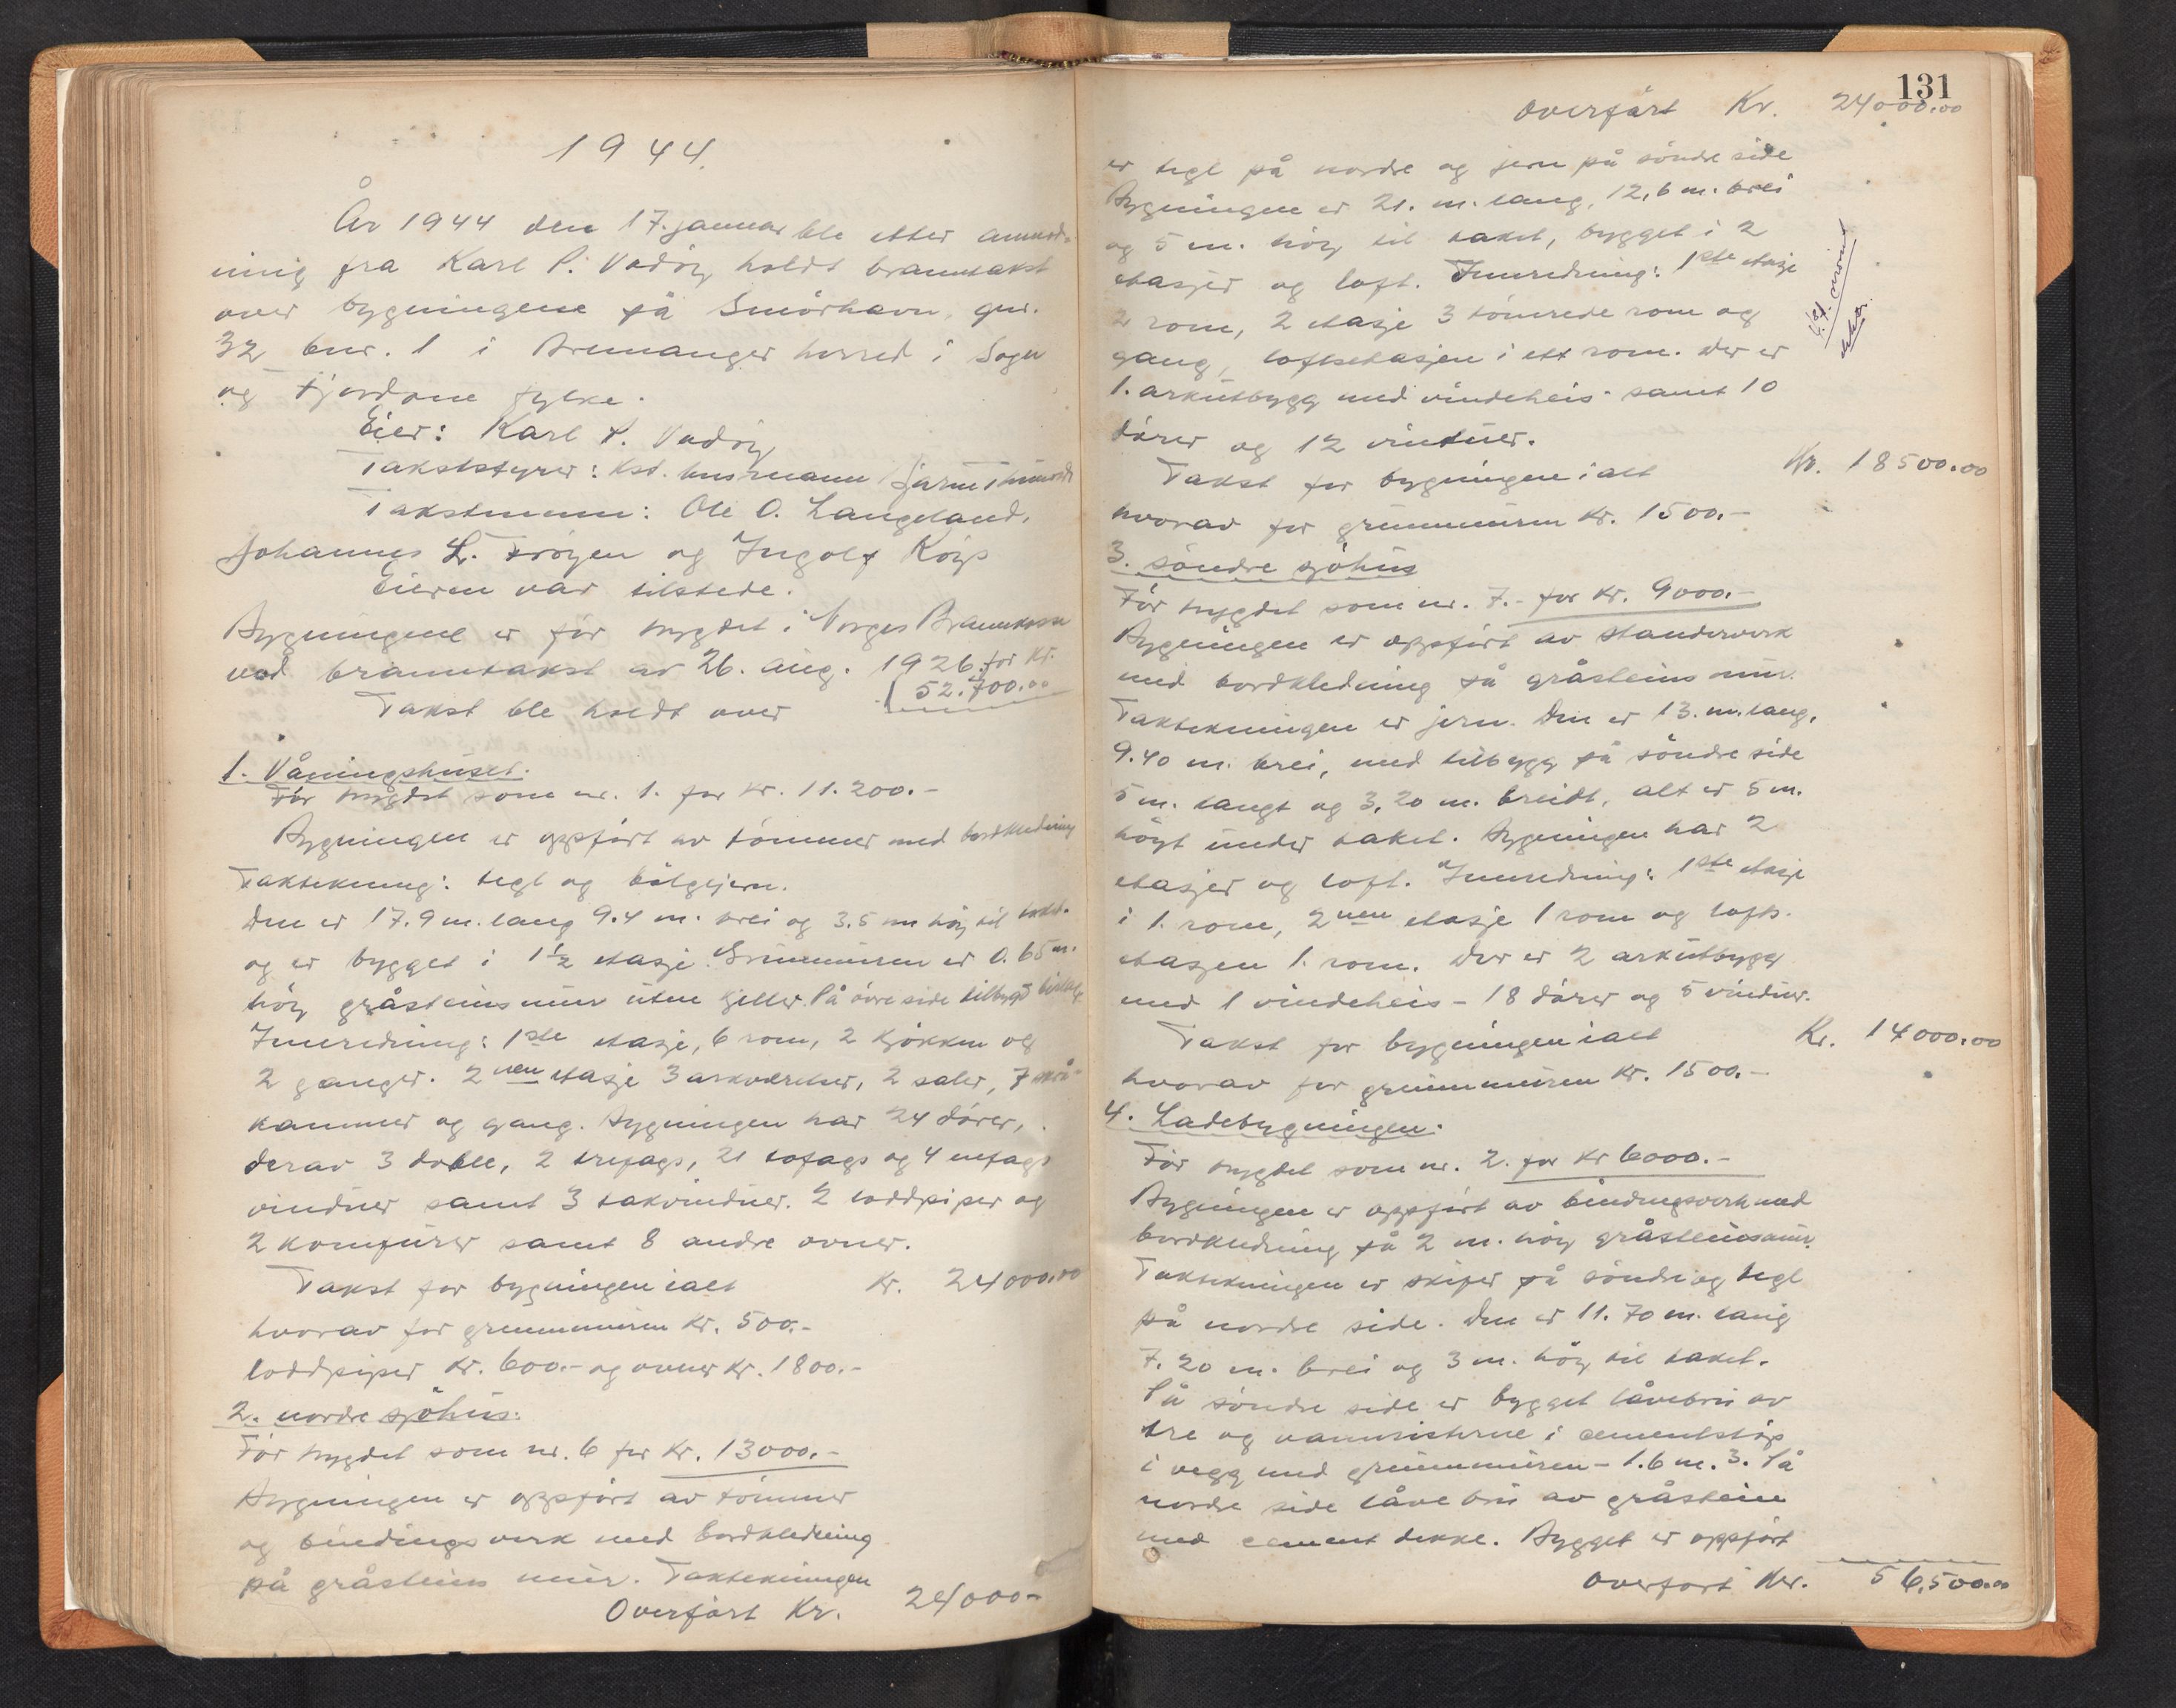 1944.
År 1944 den 17. januar ble etter anmod-
ning fra Karl P. Vadöy holdt branntakst
over bygningene på Smörhavn, gnr.
32 bnr. 1 i Bremanger herred i Sogn
og Fjordane fylke.
Eier: Karl P. Vadöy
Takststyrer: Kst. lensmann
Takstmenn: Ole O. Langeland,
Johannes L. Fröyen og Ingolf
Eieren var tilstede.
Bygningene er för trygdet i Norges Brannkasse
ved branntakst av 26. aug. 1926 for kr.
52.700.00
Takst ble holdt over
1. Våningshuset.
För trygdet som nr. 1. for kr. 11.200.-
Bygningen er oppfört av tömmer med bordkledning
Taktekning: tegl og bölgejern.
Den er 17.9 m. lang 9.4 m. brei og 3.5 m höy til taket.
og er bygget i 1½ etasje. Grunnmuren er 0.65 m.
höy gråsteinsmur uten kjeller. På övre side tilbygd
Innredning: 1ste etasje, 6 rom, 2 kjökken og
2 ganger. 2nen etasje 3 arkværelser, 2 saler, 7 skrå-
kammer og gang. Bygningen har 24 dörer,
derav 3 doble, 2 trefags, 21 tofags og 4 enfags
vinduer samt 3 takvinduer. 2 loddpiper og
2 komfurer samt 8 andre ovner.
Takst for bygningen ialt Kr. 24000.00
hvorav for grunnmuren kr. 500.-
loddpiper kr. 600.- og ovner kr. 1800.-
2. nordre sjöhus:
För trygdet som nr. 6 for kr. 13000.-
Bygningen er oppfört av tömmer
og bindingsverk med bordkledning
på gråsteins mur. Taktekningen
Overfört Kr. 24000-
131
Overfört Kr. 24000.00
er tegl på nordre og jern på söndre side
Bygningen er 21. m. lang, 12,6 m. brei
og 5 m. höy til taket, bygget i 2
etasjer og loft. Innredning: 1ste etasje
2 rom, 2 etasje 3 tömrede rom og
gang, loftsetasjen i ett rom. Der er
1. arkutbygg med vindeheis samt 10
dörer og 12 vinduer.
Takst for bygningen ialt Kr. 18500.00
hvorav for grunnmuren kr. 1500.-
3. söndre sjöhus
För trygdet som nr. 7.- for kr. 9000.-
Bygningen er oppfört av standerverk
med bordkledning på gråsteins mur.
Taktekningen er jern. Den er 13. m. lang,
9.40 m. brei, med tilbygg på söndre side
5 m. langt og 3,20 m. breidt, alt er 5 m.
höyt under taket. Bygningen har 2
etasjer og loft. Innredning: 1ste etasje
i 1. rom, 2nen etasje 1 rom og lofts-
etasjen 1. rom. Der er 2 arkutbygg
med 1 vindeheis - 18 dörer og 5 vinduer.
Takst for bygningen ialt Kr. 14000.00
hvorav for grunnmuren kr. 1500.-
4. Ladebygningen.
För trygdet som nr. 2. for kr 6000.-
Bygningen er oppfört av bindingsverk med
bordkledning på 2 m. höy gråsteinsmur.
Taktekningen er skifer på söndre og tegl
på nordre side. Den er 11.70 m. lang
7.20 m. brei og 3 m. höy til taket.
På söndre side er bygget låvebru av
tre og vanncisterne i cementstöp
i vegg med grunnmuren - 1.6 m.3. På
nordre side låvebru av gråstein
med cement dekke. Bygget er oppfört
Overfört Kr. 56,500.00